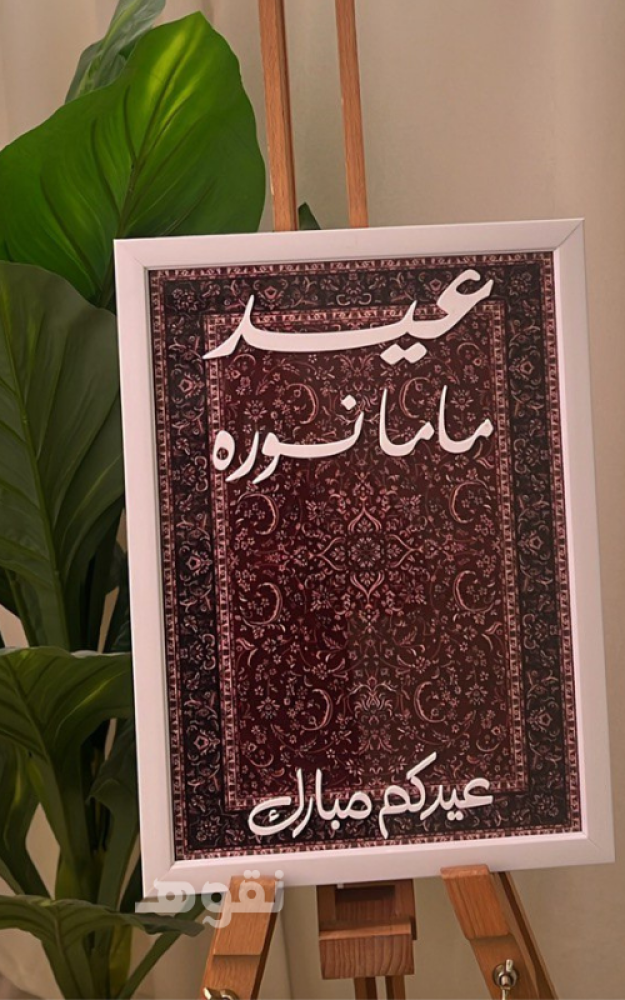 عيد
ماما نوره
عيدكم مبارك
نقوه